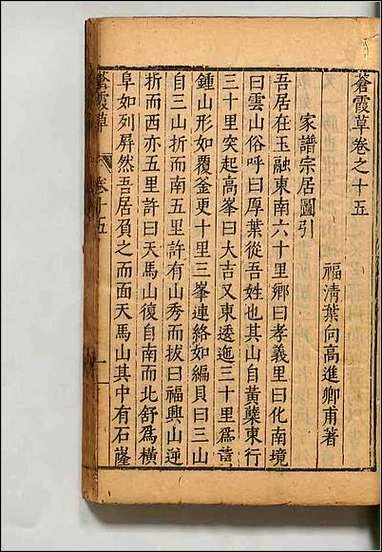 蒼霞草卷之十五
福清葉向高進卿甫著
家譜宗居圖引
吾居在玉融東南六十里鄉曰孝義里曰化南境
曰雲山俗呼曰厚葉從吾姓也其山自黃蘗東行
三十里突起高峯曰大吉又東逶迤三十里爲
鍾山形如覆釜更十里三峯連絡如編貝曰三山
自三山折而南五里許有山秀而拔曰福興山逆
折而西亦五里許曰天馬山復自南而北舒爲橫
阜如列屏然吾居負之而面天馬山其中有石
蒼霞草
卷十五
一